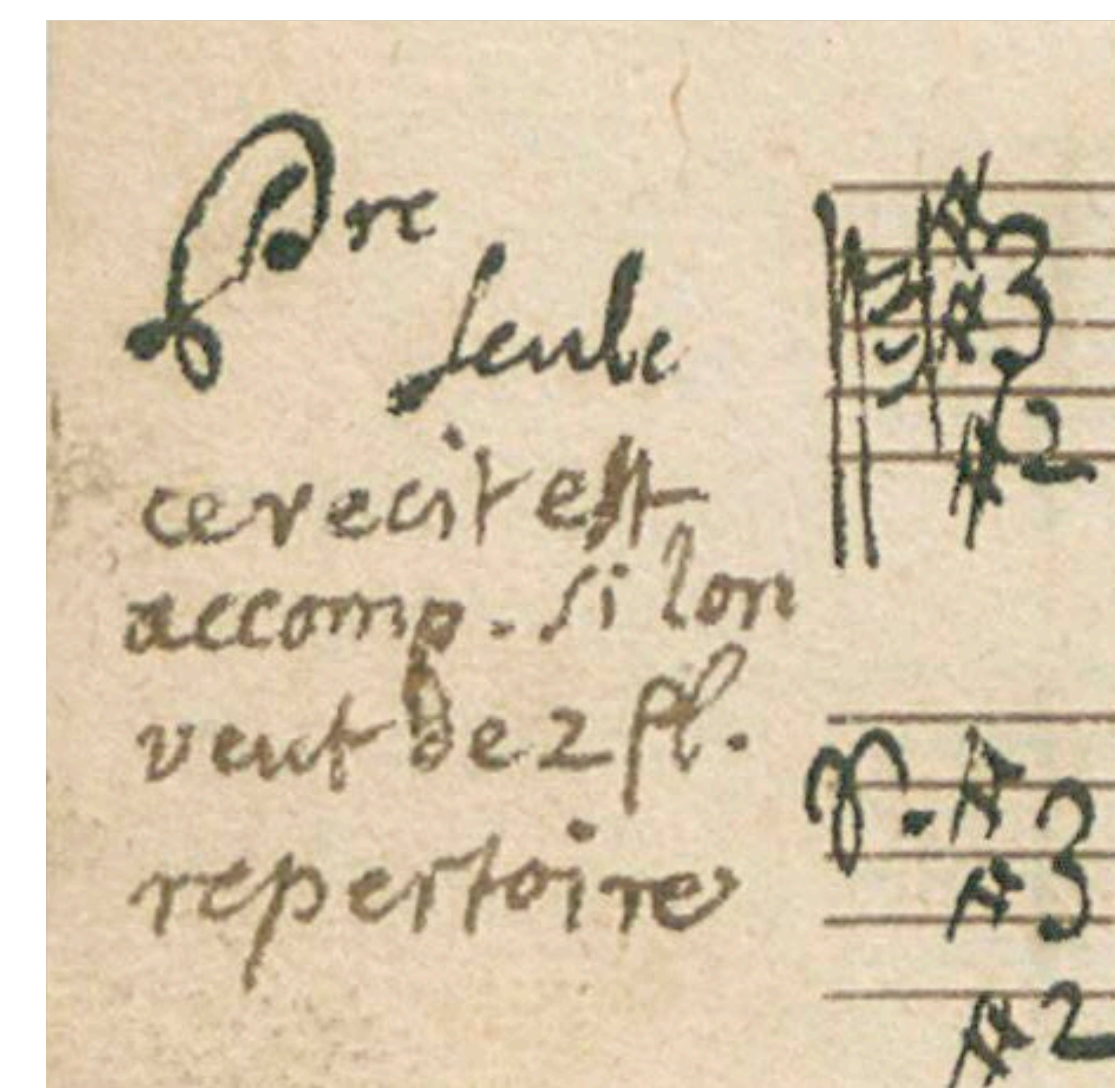 Pre
seule
ce recit est
accomp. si lon
veut de 2 fl.
repertoire
3
2
3
2